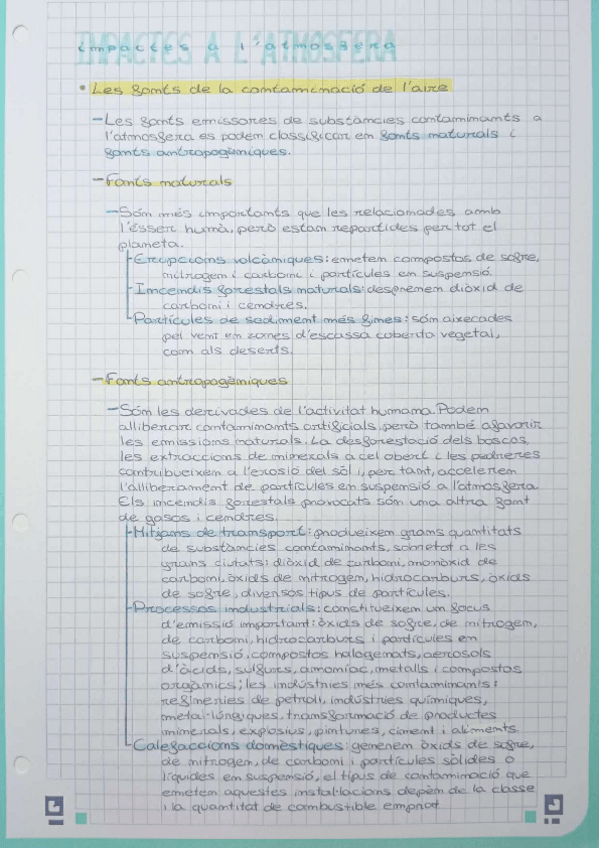 IMPACTES A L'ATMOSFERA
impactes a l'atmosfera
• Les fonts de la contaminació de l'aire
- Les fonts emissores de substàncies contaminants a
l'atmosfera es poden classificar en fonts naturals i
fonts antropogèniques.
- Fonts naturals
- Són més importants que les relacionades amb
l'ésser humà, però estan repartides per tot el
planeta.
Erupcions volcàniques: emeten compostos de sofre,
nitrogen i carboni i partícules en suspensió.
Incendis forestals naturals: desprenen diòxid de
carboni i cendres.
Partícules de sediment més fines: són aixecades
pel vent en zones d'escassa coberta vegetal,
com als deserts.
- Fonts antropogèniques
- Són les derivades de l'activitat humana. Poden
alliberar contaminants artificials, però també afavorir
les emissions naturals. La desforestació dels boscos,
les extraccions de minerals a cel obert i les pedreres
contribueixen a l'erosió del sòl i, per tant, acceleren
l'alliberament de partícules en suspensió a l'atmosfera.
Els incendis forestals provocats són una altra font
de gasos i cendres.
Mitjans de transport: produeixen grans quantitats
de substàncies contaminants, sobretot a les
grans ciutats: diòxid de carboni, monòxid de
carboni, òxids de nitrogen, hidrocarburs, òxids
de sofre, diversos tipus de partícules.
Processos industrials: constitueixen un focus
d'emissió important: òxids de sofre, de nitrogen,
de carboni, hidrocarburs i partícules en
suspensió, compostos halogenats, aerosols
d'àcids, sulfurs, amoníac, metalls i compostos
orgànics; les indústries més contaminants:
refineries de petroli, indústries químiques,
metal·lúrgiques, transformació de productes
minerals, explosius, pintures, ciment i aliments.
Calefaccions domèstiques: generen òxids de sofre,
de nitrogen, de carboni i partícules sòlides o
líquides en suspensió, el tipus de contaminació que
emeten aquestes instal·lacions depèn de la classe
i la quantitat de combustible emprat